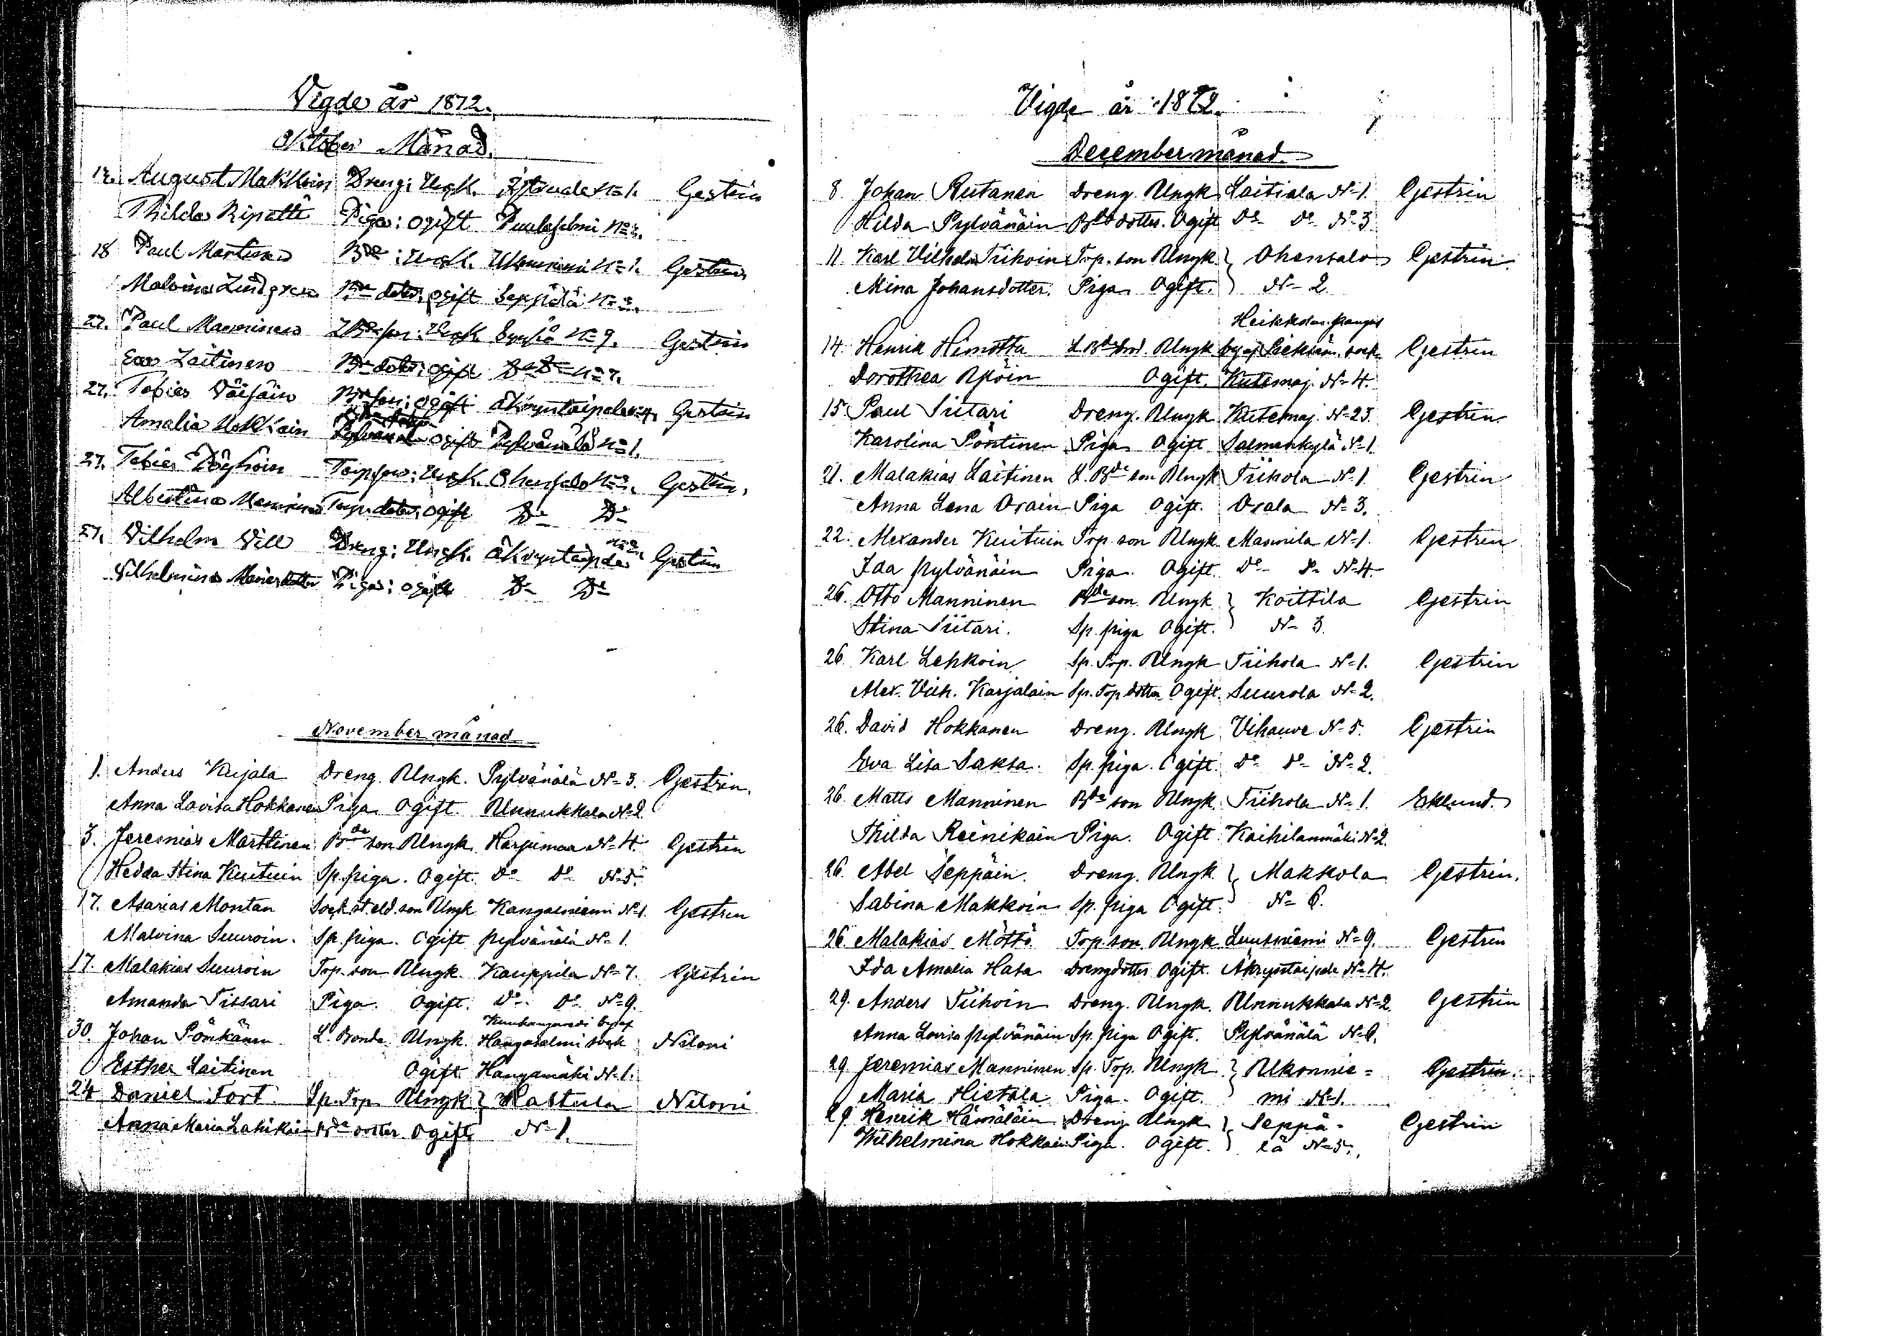 Vigde år 1872.
Oktober Månad.
12. August Makkoin Dreng: Ungk. N=1. Gestrin
Thilda Ripatti Piga: ogift Puulasalmi N=2.
18 Paul Marttinen Bde: Ungk. Ukonniemi N=1. Gestrin
Malvina Lindgren Bde dotter, ogift Seppälä N=3.
27. Paul Manninen Ungk N=9. Gestrin
Eva Laitinen Bde dotter, ogift D=o D=o N=7.
27. Tobias Väisäin Bde son: ogift Åkryntaipale N=4. Gestrin
Amalia Makkoin ogift Pylvänälä N=1.
27. Tobias Torp son: Ungk. Ohensalo N=2. Gestrin.
Albertina Manninen Torp dotter, ogift D=o D=o
27. Vilhelm Vill Dreng: Ungk. Åkryntaipale N=2. Gestrin
Vilhelmina Piga: ogift D=o D=o
November månad
1. Anders Kujala Dreng. Ungk. Pylvänälä N=3. Gestrin.
Anna Lovisa Hokkanen Piga Ogift Unnukkala N=2
3. Jeremias Marttinen Bde son Ungk Harjumaa N=4. Gestrin
Hedda Stina Kuituin Sp. piga. Ogift. Do Do N=5.
17. Asarias Montan Sock. st. eld. son Ungk Kangasniemi N=1. Gestrin
Malvina Suuroin. Sp. piga. Ogift Pylvänälä N=1.
17. Malakias Suuroin Torp. son Ungk Kauppila N=7. Gestrin
Amanda Tissari Piga. Ogift. Do. Do. N=9.
30. Johan Pönkänen L. Bonde Ungk by af Hangasalmi sock Niloni
Esther Laitinen Ogift Hangamäki N=1.
24 Daniel Fort Sp. Torp Ungk } Hastula Niloni
Anna Maria Lahikain Bde dotter Ogift N=1.
Vigde år 1872.
December månad.
8. Johan Rutanen Dreng. Ungk Laitiala N=1. Gestrin
Hilda Pylvänäin Bde dotter. Ogift Do Do N=3.
11. Karl Vilhelm Tiihoin Torp. son Ungk } Ohensalo Gestrin.
Mina Johansdotter. Piga Ogift. } N=2
14. Henrik Himotta L. Bde son Ungk Heikkola by af Pieksäm. sock Gestrin
Dorothea Ogift. Kutemaj. N=4.
15. Paul Siitari Dreng. Ungk Kutemaj. N=23. Gestrin
Karolina Pöntinen Piga Ogift Salmenkylä N=1.
21. Malakias Laitinen L. Bde son Ungk Tiihola N=1. Gestrin
Anna Lena Orain Piga Ogift. Orala N=3.
22. Alexander Kuituin Torp. son Ungk Mannila N=1. Gestrin
Ida Pylvänäin Piga. Ogift. Do Do N=4.
26. Otto Manninen Bde son Ungk } Koittila Gestrin
Stina Siitari. Sp. piga Ogift. } N=3.
26. Karl Lehkoin Sp. Torp. Ungk Tiihola N=1. Gestrin
Alex. Vilh. Karjalain Sp. Torp dotter Ogift. Suurola N=2.
26. David Hokkanen Dreng. Ungk Vihauve N=5. Gestrin
Eva Lisa Saksa. Sp. piga. Ogift. Do Do N=2.
26. Matts Manninen Bde son Ungk Tiihola N=1. Eklund.
Thilda Reinikain Piga. Ogift Kaihilanmäki N=2.
26. Abel Seppäin. Dreng. Ungk } Makkola Gestrin.
Sabina Makkoin Sp. piga Ogift. } N=6.
26. Malakias Möttö Torp son Ungk Luusniemi N=9. Gestrin
Ida Amalia Hasa Drengdotter Ogift. Åkryntaipale N=4.
29. Anders Tiihoin Dreng. Ungk. Unnukkala N=2 Gestrin
Anna Lovisa Pylvänäin Sp. piga Ogift. Pylvänälä N=6.
29. Jeremias Manninen Sp. Torp. Ungk } Ukonnie= Gestrin.
Maria Hietala Piga. Ogift. } mi N=1.
29. Henrik Hämäläin Dreng Ungk } Seppä= Gestrin
Wilhelmina Hokkain Piga. Ogift. } lä N=5.